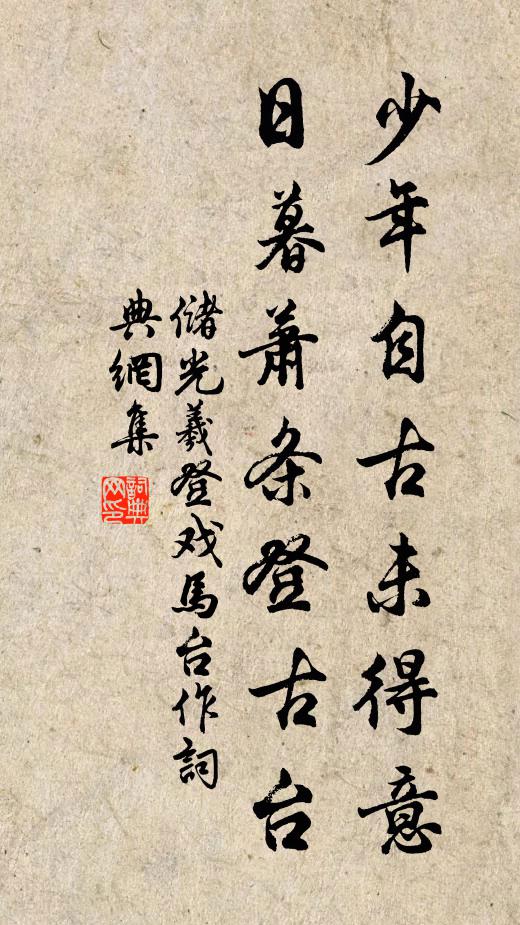 少年自古未得意
日暮萧条登古台
储光羲登戏马台作詞
典網集
詞典網印